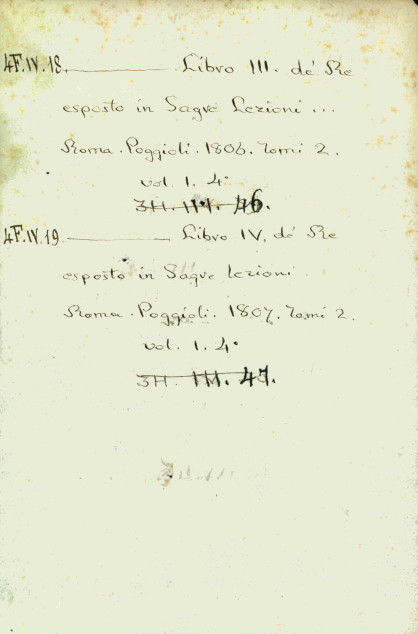 4F.IV.18. Libro III. de' Re
esposto in Sagre Lezioni ...
Roma. Poggioli. 1806. Tomi 2.
vol. 1. 4°
3H. III. 46.
4F.IV.19 Libro IV. de' Re
esposto in Sagre lezioni
Roma. Poggioli. 1807. Tomi 2.
vol. 1. 4°
3H. III. 47.